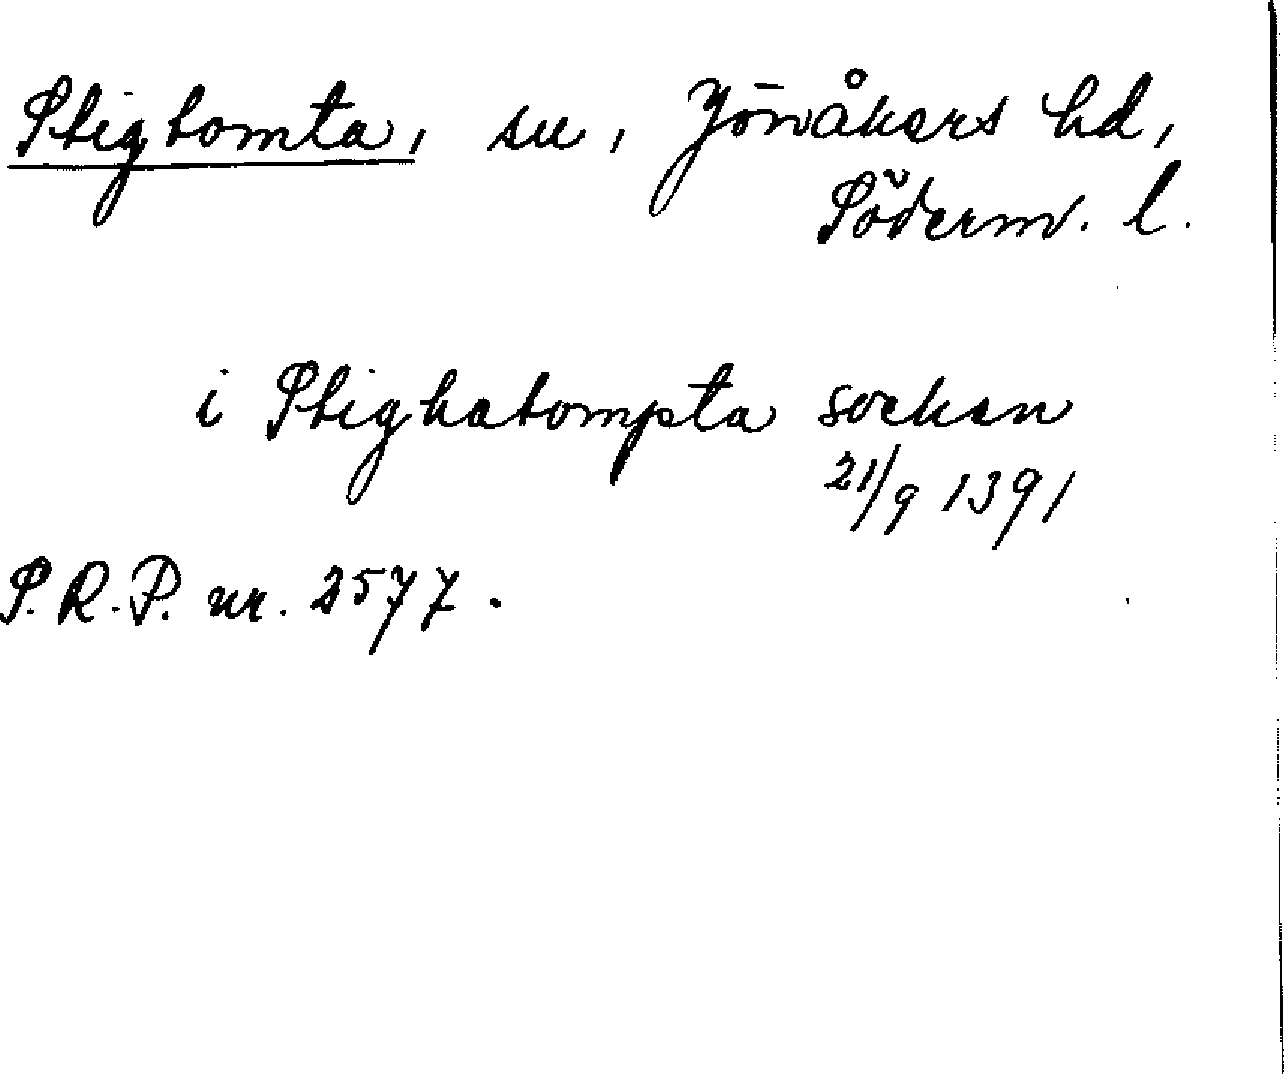 Stigtomta, sn, Jönåkers hd,
Söderm. l.
i Stighatompta socken
21/9 1391
S.R.P. nr. 2577.